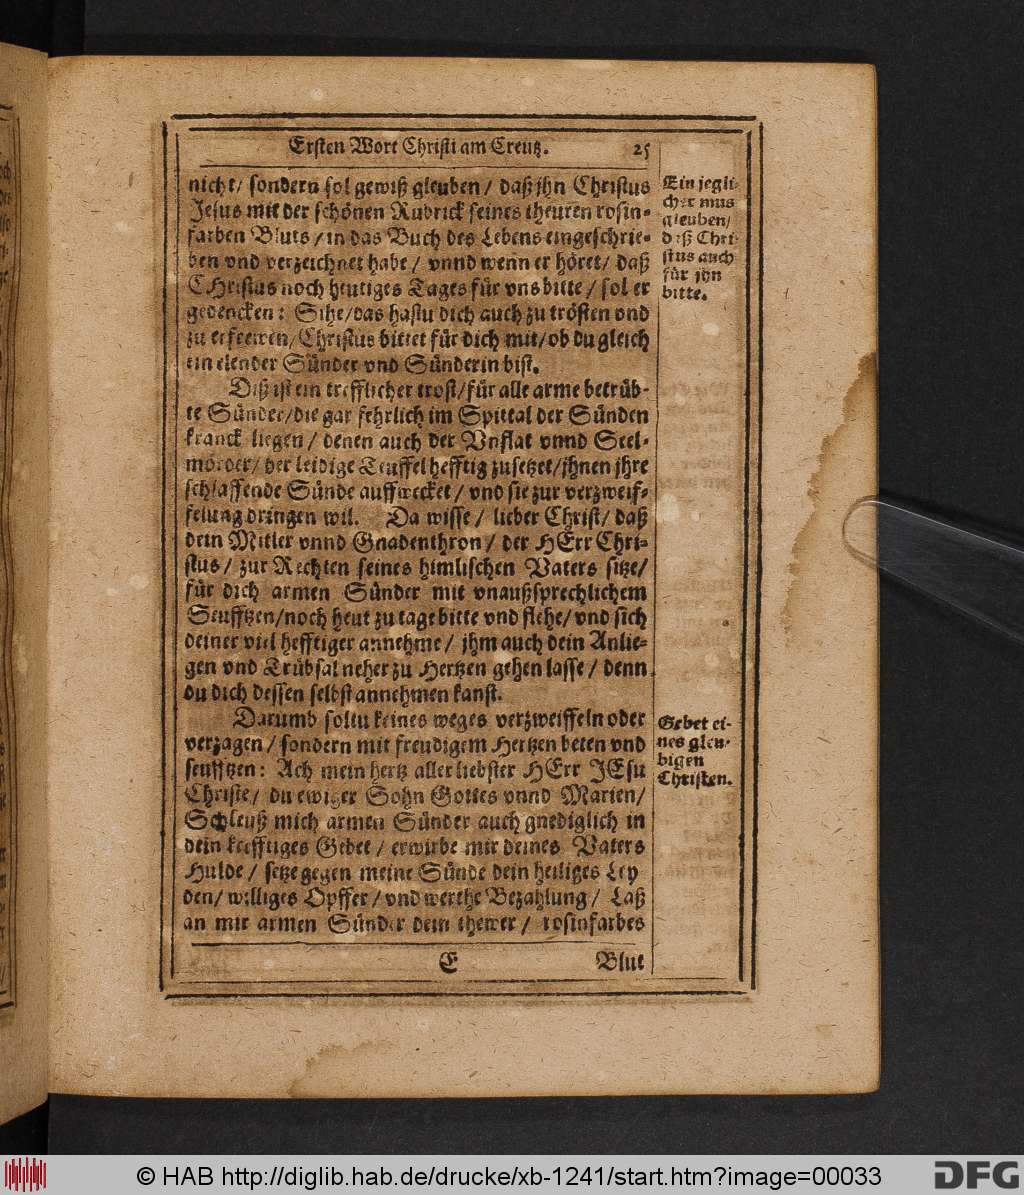 Ersten Wort Christi am Creutz. 25
nicht/ sondern sol gewiß gleuben/ daß jhn Christus
Jesus mit der schönen Rubrick seines theuren rosin-
farben Bluts/ in das Buch des Lebens eingeschrie-
ben vnd verzeichnet habe/ vnnd wenn er höret/ daß
CHristus noch heutiges Tages für vns bitte/ sol er
gedencken: Sihe/ das hastu dich auch zu trösten vnd
zu erfrewen/ Christus bittet für dich mit/ ob du gleich
ein elender Sünder vnd Sünderin bist.
Diß ist ein trefflicher trost/ für alle arme betrüb-
te Sünder/ die gar fehrlich im Spittal der Sünden
kranck liegen/ denen auch der Vnflat vnnd Seel-
mörder/ der leidige Teuffel hefftig zusetzet/ jhnen jhre
schlaffende Sünde auffwecket/ vnd sie zur verzweif-
felung dringen wil. Da wisse/ lieber Christ/ daß
dein Mitler vnnd Gnadenthron/ der HErr Chri-
stus/ zur Rechten seines himlischen Vaters sitze/
für dich armen Sünder mit vnaußsprechlichem
Seufftzen/ noch heut zu tage bitte vnd flehe/ vnd sich
deiner viel hefftiger annehme/ jhm auch dein Anlie-
gen vnd Trübsal neher zu Hertzen gehen lasse/ denn
du dich dessen selbst annehmen kanst.
Darumb soltu keines weges verzweiffeln oder
verzagen/ sondern mit freudigem Hertzen beten vnd
seufftzen: Ach mein hertz allerliebster HErr JEsu
Christe/ du ewiger Sohn Gottes vnnd Marien/
Schleuß mich armen Sünder auch gnediglich in
dein krefftiges Gebet/ erwirbe mir deines Vaters
Hulde/ setze gegen meine Sünde dein heiliges Ley
den/ williges Opffer/ vnd werthe Bezahlung/ Laß
an mir armen Sünder dein thewer/ rosinfarbes
E Blut
Ein jegli-
cher mus
gleuben/
daß Chri-
stus auch
für jhn
bitte.
Gebet ei-
nes gleu-
bigen
Christen.
© HAB http://diglib.hab.de/drucke/xb-1241/start.htm?image=00033
DFG